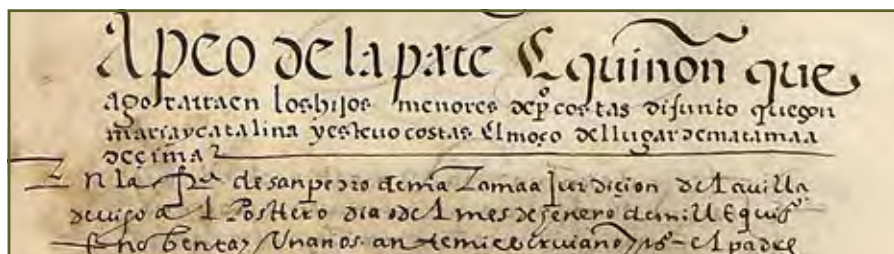 Apeo de la parte E quiñon que
agora traen los hijos menores de pº costas difunto que son
maria y catalina y esteuo costas El moço del lugar de matamaa
de cima
En la de san pedro de mataman Jurdiçion de la uilla
de uigo a El Postrero dia del mes de henero de mill E quiºs
E nobenta y Un anos an de mi escriuano El padre